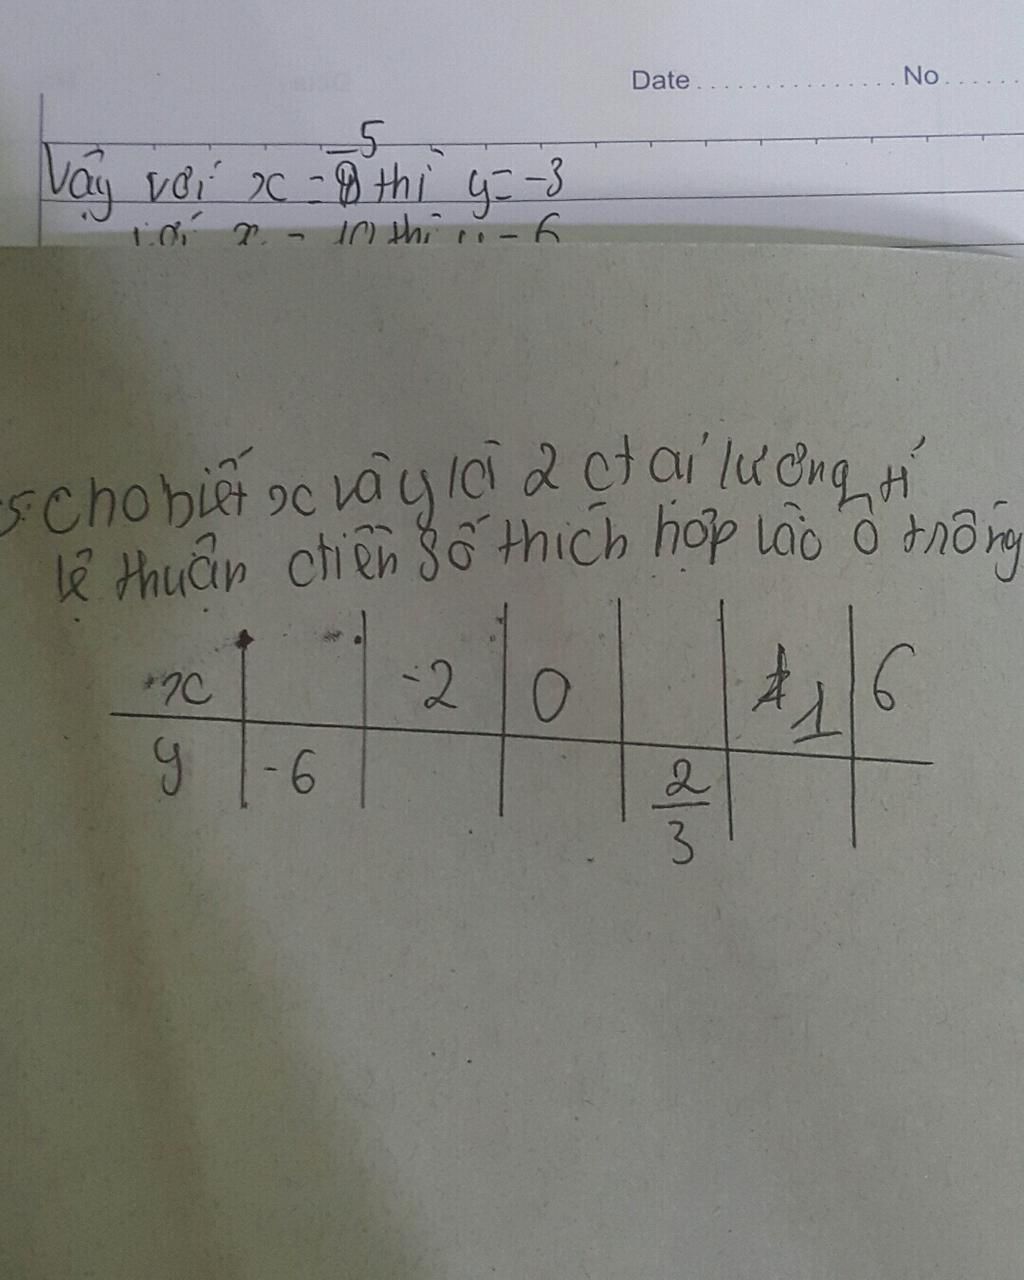 Date ................ No ......
Vậy với x = -5 thì y = -3
với x = 10 thì y = 6
5. Cho biết x và y là 2 đại lượng tỉ
lệ thuận điền số thích hợp vào ô trống
x -2 0 1 6
y -6 2/3